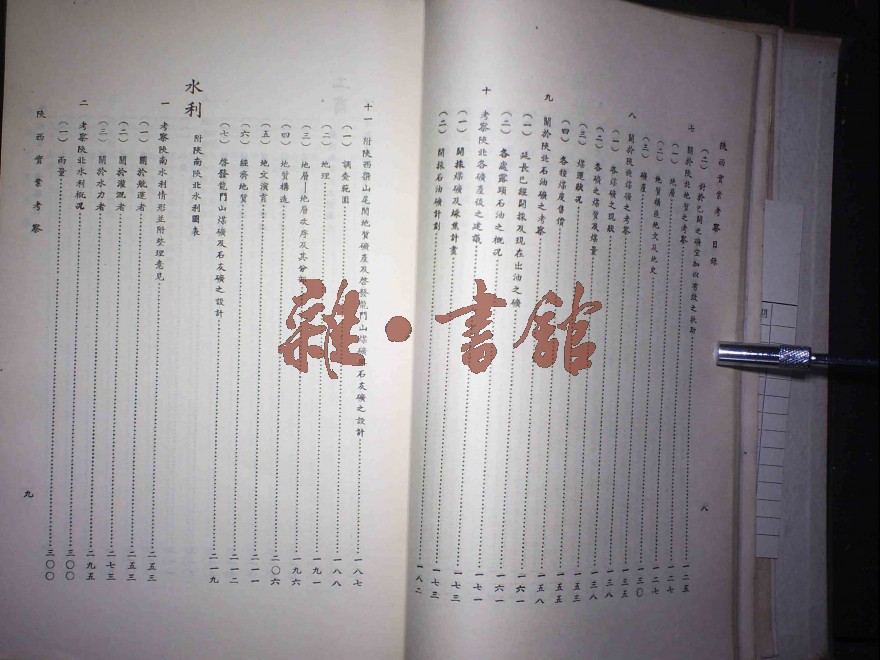 陝西實業考察目錄
(二) 對於已開之礦宜加以有效之扶助 一二五
七 關於陝北地質之考察 一二七
(一) 地層 一二七
(二) 地質構造地文及地史
(三) 礦產 一三〇
八 關於陝北煤礦之考察 一三五
(一) 各煤礦之現狀 一三八
(二) 各礦之煤質及煤量 一三八
(三) 煤運狀況 一五三
(四) 各種煤炭售價 一五五
九 關於陝北石油礦之考察 一五八
(一) 延長已經開採及現在出油之礦 一六一
(二) 各處露頭石油之概況 一六一
十 考察陝北各礦產後之建議 一七一
(一) 開採煤礦及煉焦計畫 一七三
(二) 開採石油礦計劃 一八二
八
十一 附陝西梁山尾閭地質礦產及啓發龍門山煤礦石灰礦之設計 一八七
(一) 調查範圍 一八八
(二) 地理 一九一
(三) 地層—地層次序及其分 一九六
(四) 地質構造 二〇六
(五) 地文演育 二一一
(六) 經濟地質 二一二
(七) 啓發龍門山煤礦及石灰礦之設計 二一九
水利 附陝南陝北水利圖表
一 考察陝南水利情形並附整理意見 二五三
(一) 關於航運者 二五三
(二) 關於灌溉者 二七三
(三) 關於水力者 二九五
二 考察陝北水利概況 三〇〇
(一) 雨量 三〇〇
陝西實業考察
九
雜·書館